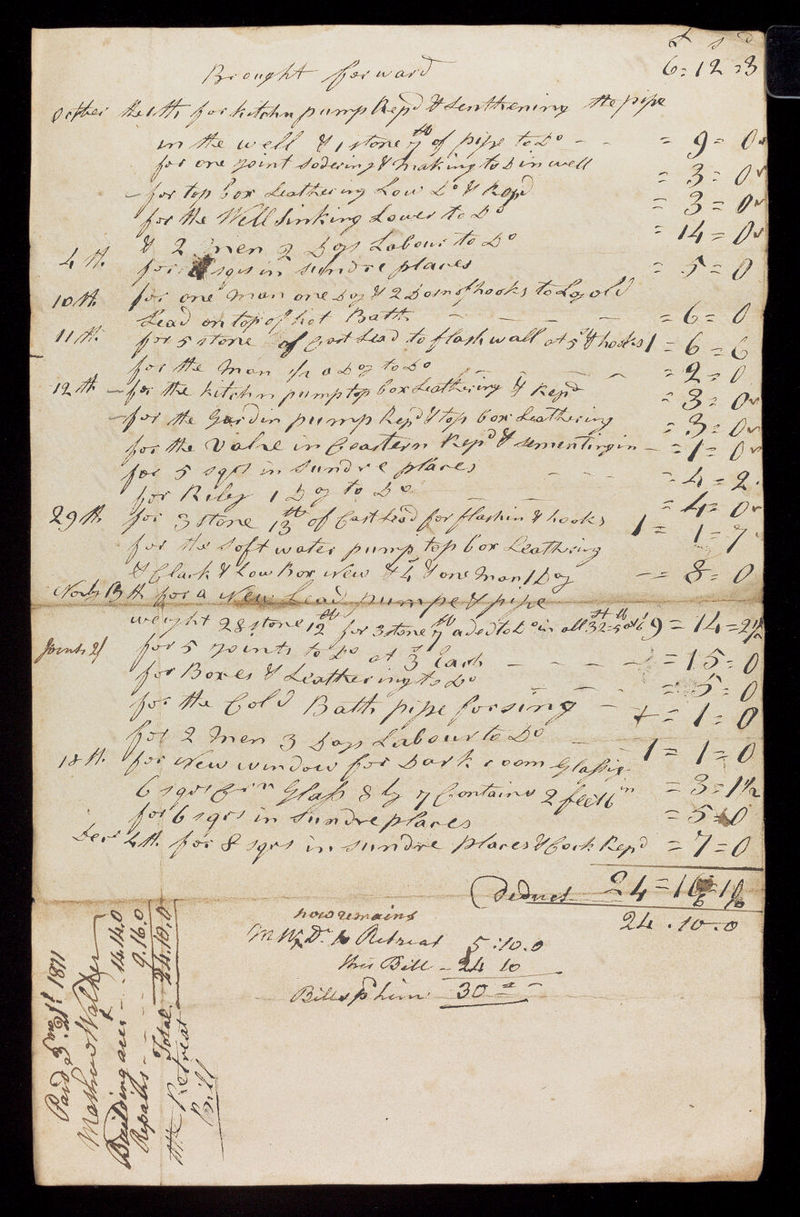 £ s d
Brought forward 6=12=3
October the 1th for kitchn pump Repd & Lenthening the pipe
in the well & 1 stone 7 th of pipe to Do - - = 9= 0
for one joint sodering & making to Do in well = 3= 0
- for top box Leathering Low Do & Repd = 3= 0
for the Well Sinking Lower to Do = 14= 0
& 2 men 2 Days Labour to Do
4 th for sqrs in sundre places = 5= 0
10th for one man one Day & 2 Dosn of hooks to Lay old
Lead on top of hot Bath - - - - - =6= 0
11th for 5 stone of Cast Lead to flash wall at 5s & hooks 1=6=6
for the Man 1/2 a Day to Do - - =2=0
12th - for the kitchn pump top box Leathering & Repd =3= 0
- for the Gardin pump Repd & top box Leathering =3= 0
for the Valve in Ceastern Repd & sementing in - =1= 0
for 5 sqrs in sundre places - - - =4= 2
for Riley 1 Day to Do - - - =4= 0
29th for 3 stone 13 th of Cast Lead for flashin & hooks 1= 1=7
for the soft water pump top box Leathering
& Clack & Low Box New & & one Man 1 Day -=8= 0
Novbr 13th for a New Lead pumpe & pipe
weight 28 stone 12 th for 3 stone 7 th aded to Do in all 32st-5th at 6/ 9=14=2 1/2
Joints 2/ for 5 Joints to Do at 3 Each - - - - =15=0
for Boxes & Leathering to Do - - =5=0
for the Cold Bath pipe forsing - + =1=0
for 2 men 3 Days Labour to Do - - 1=1=0
18th for New window for Dark room Glasing
6 sqrs Grn Glass 8 by 7 Contains 2 feet 6 in =3=1 1/2
for 6 sqrs in sundre places =5=0
Decr 4th for 8 sqrs in sundre places & Cock Repd =7=0
24=16=10
Deduct 6 10
24.10.0
now remains
M W Dr to Retreat 5.10.0
this Bill - 24 10
Bills pd him 30 = -
Paid 1811
Mathew Walker
Building acct - - 14.14.0
Repairs - - - 9.16.0
Total 24.10.0
The Retreat
Bill